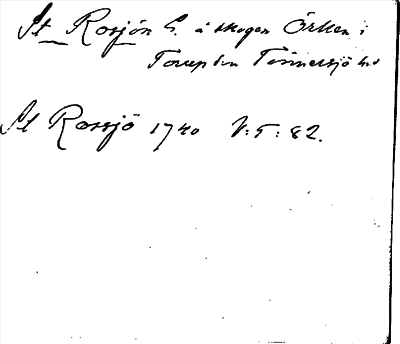 St Rosjön S. å skogen Örken i
Torup sn Tönnersjö hd
St Rossjö 1740 V:5:82.